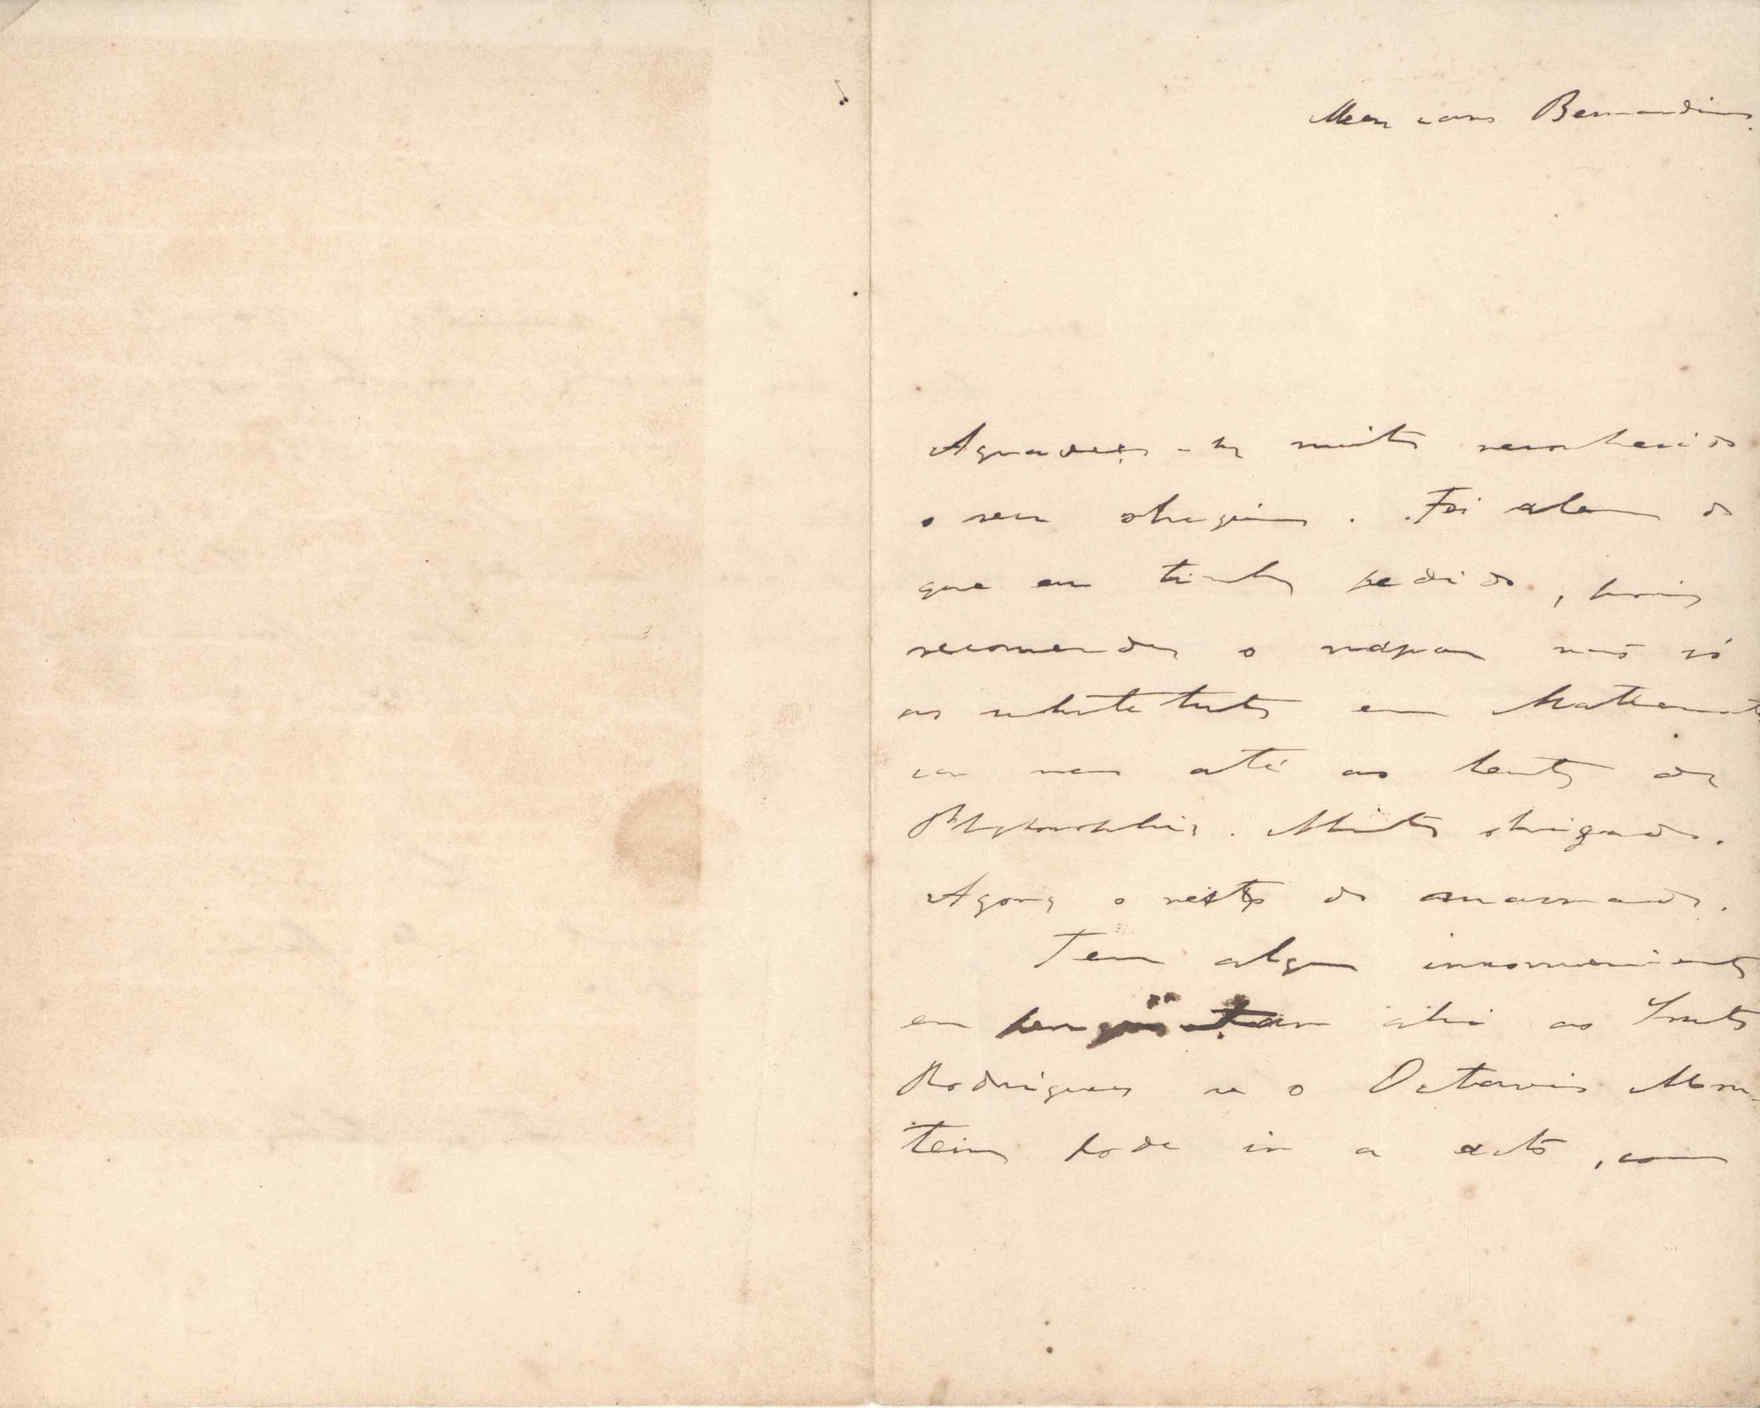 Meu caro Bernardino.
Agradeço-lhe muito reconhecido
o seu obsequio. Foi alem do
que eu tinha pedido, pois
recomendou o rapaz não só
ao substituto em Mathemati
ca mas até ao lente de
Muito obrigado.
Agora o resto do
Tem algum inconveniente
em perguntar ahi ao Souto
Rodrigues se o Octavio Mon-
teiro pode ir a acto, com